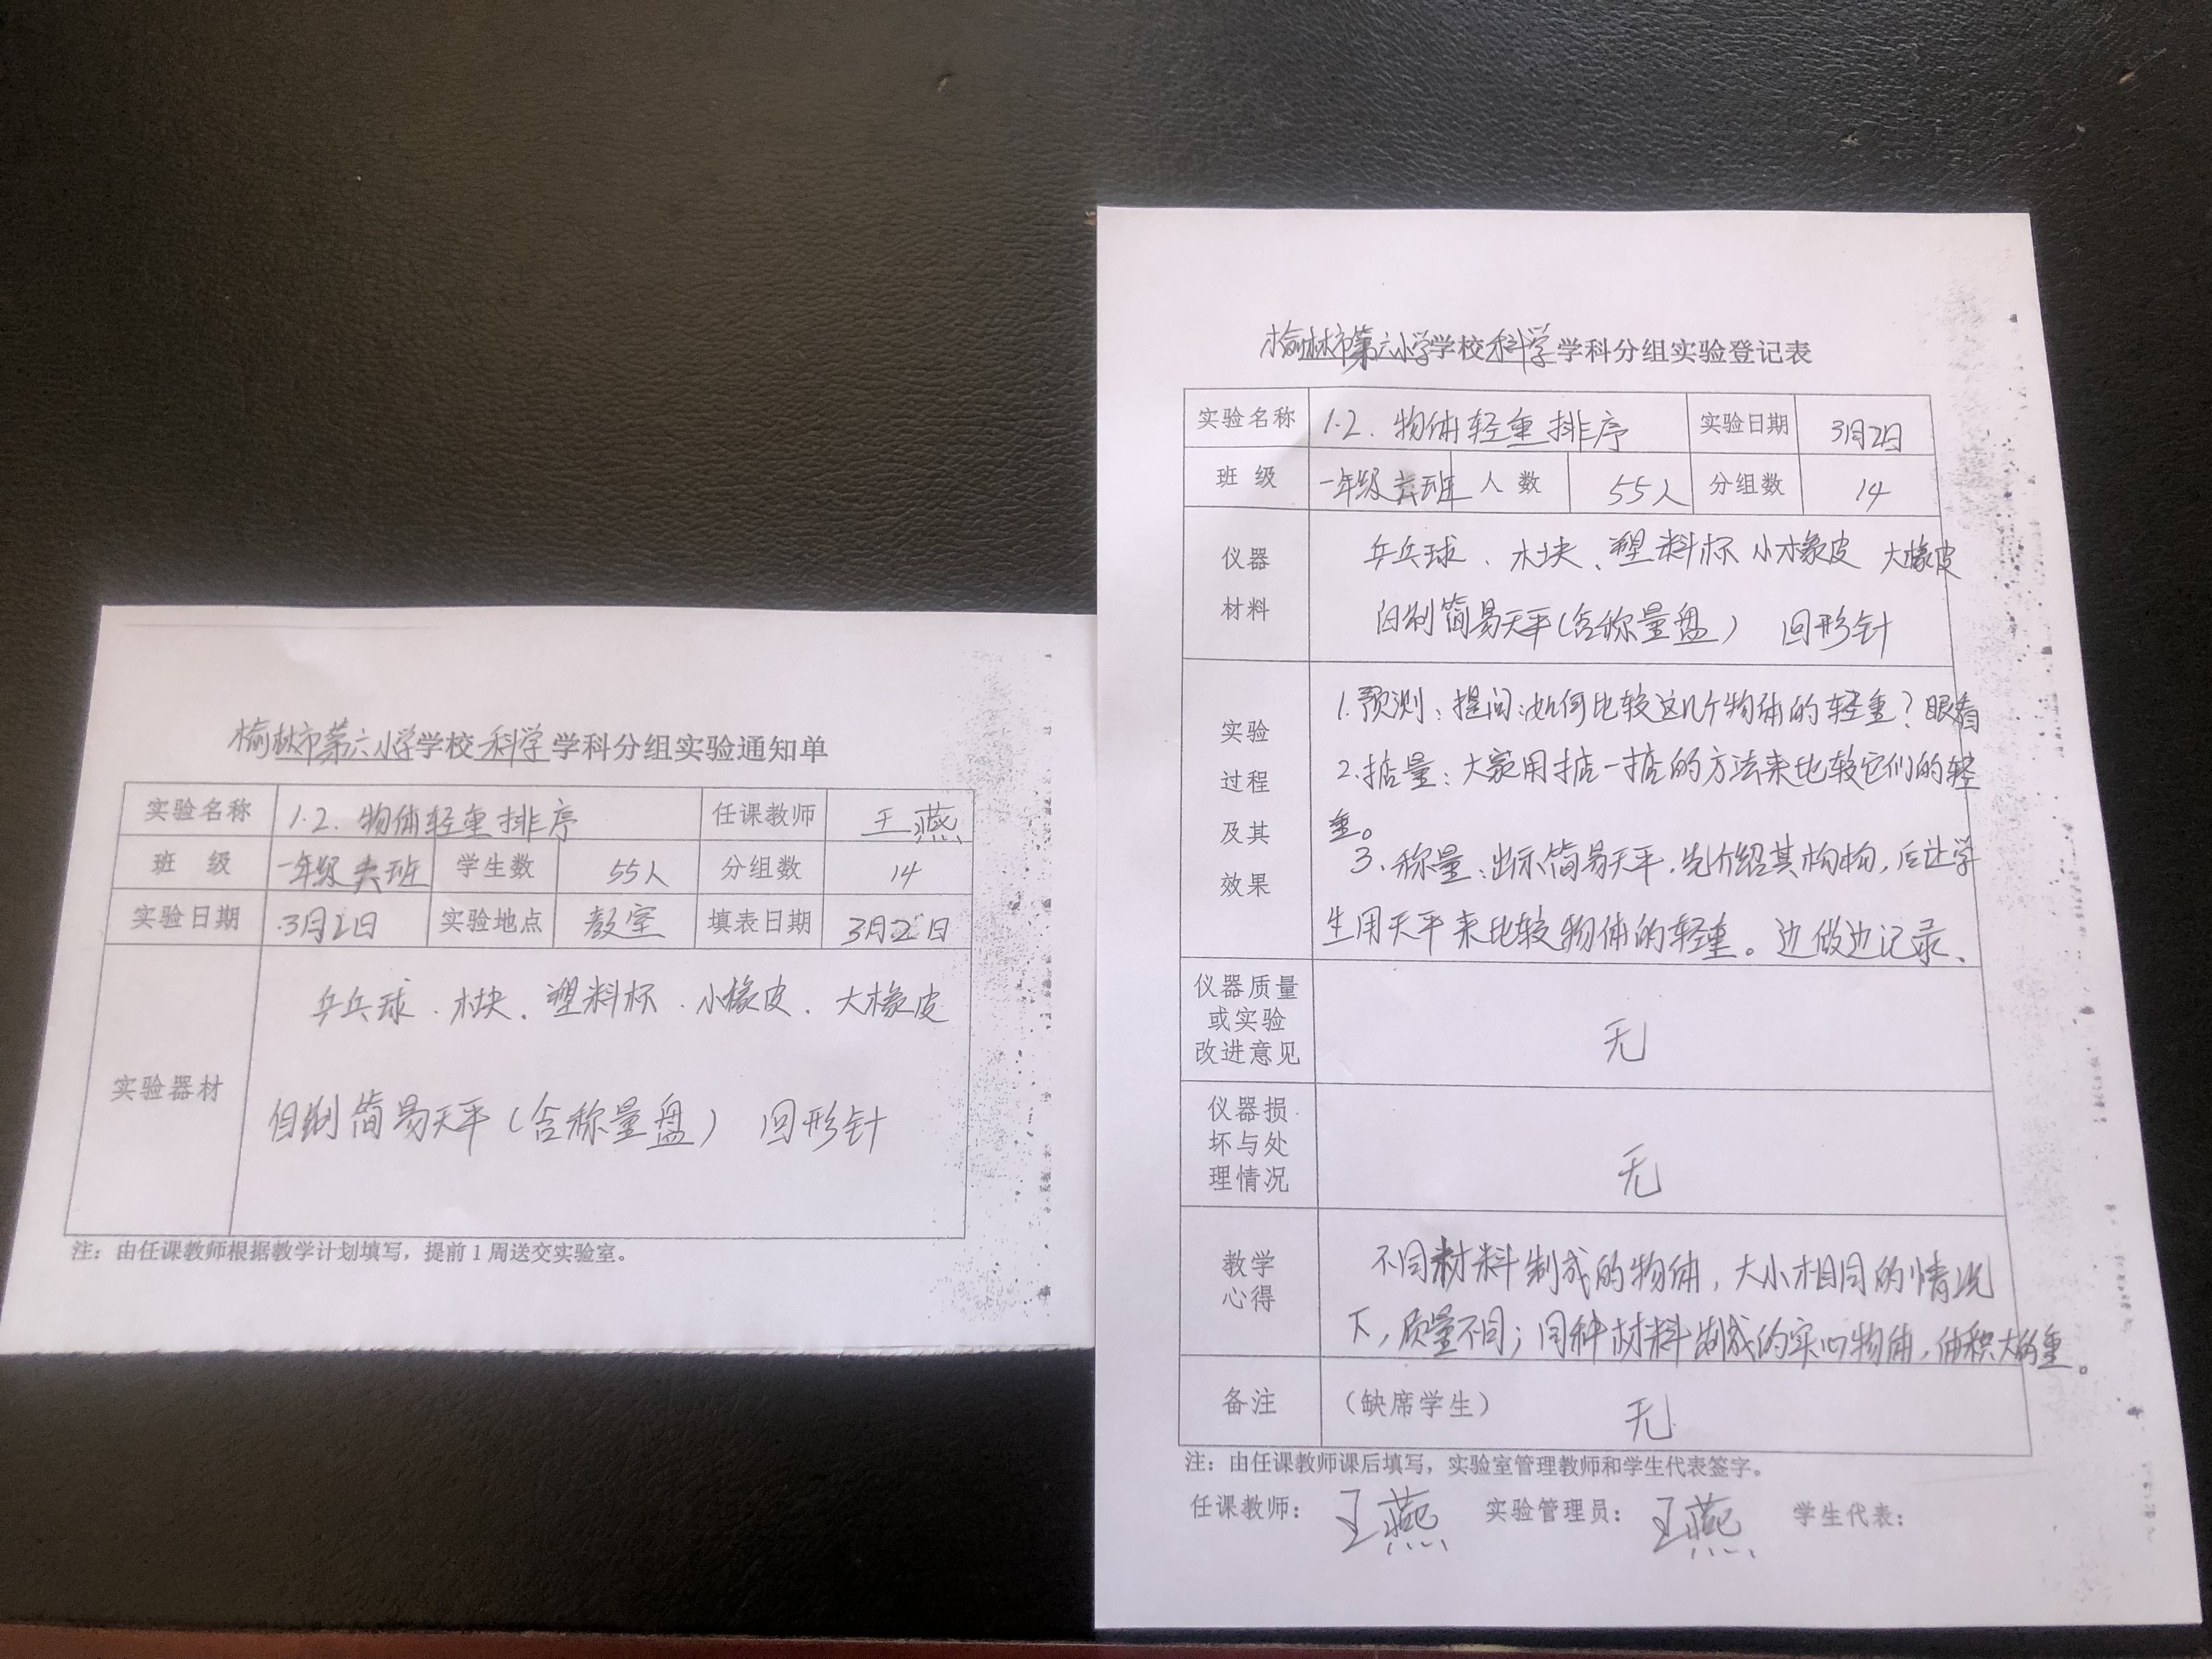 榆林市第六小学学校科学学科分组实验通知单
实验名称 1.2.物体轻重排序 任课教师 王燕
班 级 一年级 六班 学生数 55人 分组数 14
实验日期 3月2日 实验地点 教室 填表日期 3月2日
乒乓球、木块、塑料杯、小橡皮、大橡皮
实验器材
自制简易天平(含称量盘) 回形针
注：由任课教师根据教学计划填写，提前1周送交实验室。
榆林市第六小学学校科学学科分组实验登记表
实验名称 1.2.物体轻重排序 实验日期 3月2日
班 级 一年级六班 人 数 55人 分组数 14
仪器 乒乓球、木块、塑料杯 小橡皮 大橡皮
材料 自制简易天平(含称量盘) 回形针
实验
过程
及其
效果
1.预测：提问：如何比较这几个物体的轻重？眼看
2.掂量：大家用掂一掂的方法来比较它们的轻
重。
3、称量：出示简易天平，先介绍其构构，后让学
生用天平来比较物体的轻重。边做边记录、
仪器质量
或实验
改进意见
无
仪器损
坏与处
理情况
无
教学
心得
不同材料制成的物体，大小相同的情况
下，质量不同；同种材料制成的实心物体，体积大的重。
备注 （缺席学生） 无
注：由任课教师课后填写，实验室管理教师和学生代表签字。
任课教师： 王燕 实验管理员： 王燕 学生代表：